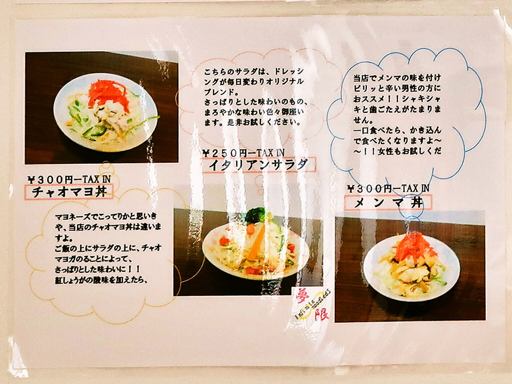 ¥300円ーTAX IN
チャオマヨ丼
マヨネーズでこってりかと思いき
や、当店のチャオマヨ丼は違いま
すよ。
ご飯の上にサラダの上に、チャオ
マヨガのることによって、
さっぱりとした味わいに！！
紅しょうがの酸味を加えたら、
こちらのサラダは、ドレッシ
ングが毎日変わりオリジナル
ブレンド。
さっぱりとした味わいのもの、
まろやかな味わい色々御座い
ます。是非お試しください。
¥250円ーTAX IN
イタリアンサラダ
夢
限
当店でメンマの味を付け
ピリッと辛い男性の方に
おススメ！！シャキシャ
キと歯ごたえがたまりま
せん。
一口食べたら、かき込ん
で食べたくなりますよ〜
〜！！女性もお試しくだ
¥300円ーTAX IN
メンマ丼